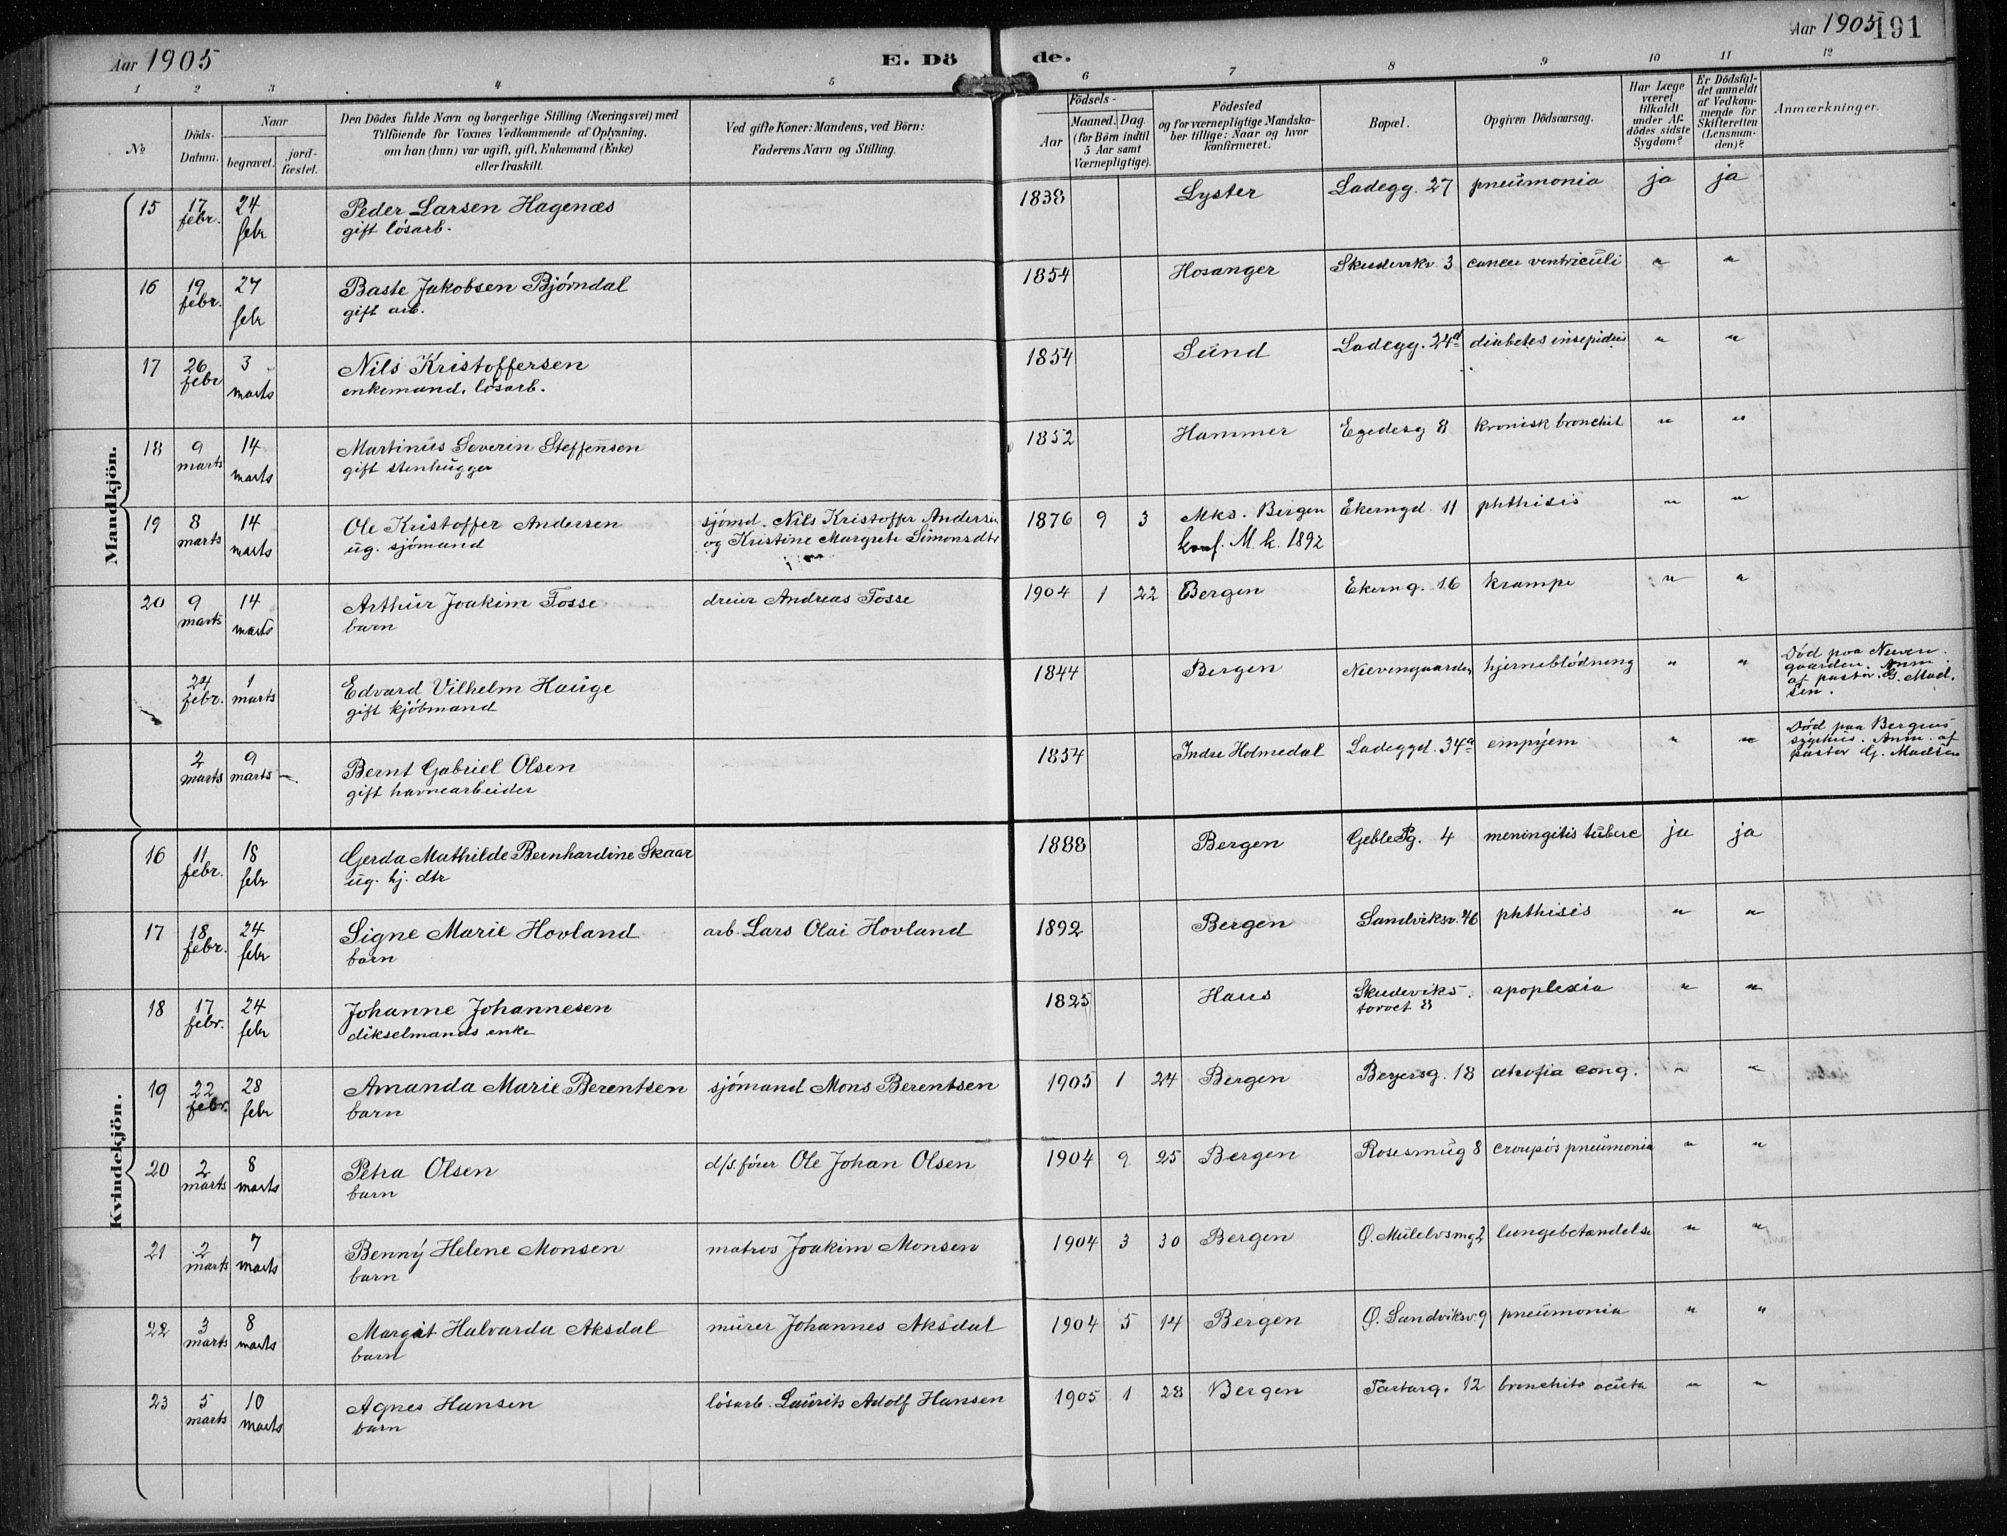 Aar 1905
E. Dö de.
Aar 1905 191
1 2 3 4 5 6 7 8 9 10 11 12
№
Döds-Datum.
Naar
begravet.
jordfæstet.
Den Dödes fulde Navn og borgerlige Stilling (Næringsvei) med
Tilföiende for Voxnes Vedkommende af Oplysning,
om han (hun) var ugift, gift, Enkemand (Enke)
eller fraskilt.
Ved gifte Koner: Mandens, ved Börn:
Faderens Navn og Stilling.
Födsels-
Aar
Maaned. Dag.
(for Börn indtil
5 Aar samt
Værnepligtige).
Födested
og for værnepligtige Mandskaber tillige: Naar og hvor
konfirmeret.
Bopæl.
Opgiven Dödsaarsag.
Har Læge
været
tilkaldt
under Afdödes sidste
Sygdom?
Er Dödsfaldet anmeldt
af Vedkommende for
Skifteretten
(Lensmanden)?
Anmærkninger.
Mandkjön.
15 17 febr. 24 febr Peder Larsen Hagenæs 1838 Lyster Ladegg. 27 pneumonia ja ja
gift lösarb.
16 19 febr. 27 febr Baste Jakobsen Bjørndal 1854 Hosanger Skudevikv. 3 cancer ventriculi " "
gift arb.
17 26 febr 3 marts Nils Kristoffersen 1854 Sund Ladegg. 24a diabetes insepidus " "
enkemand, lösarb.
18 9 marts 14 marts Martinus Severin Steffensen 1852 Hammer Egedesg 8 kronisk bronchit " "
gift stenhugger
19 8 marts 14 marts Ole Kristoffer Andersen sjömd. Nils Kristoffer Andersen 1876 9 3 Mks. Bergen Ekerngd. 11 phthisis " "
ug. sjömand og Kristine Margrete Simonsdtr konf. M. k. 1892
20 9 marts 14 marts Arthur Joakim Fosse dreier Andreas Fosse 1904 1 22 Bergen Ekerng. 16 krampe " "
barn
24 febr. 1 marts Edvard Vilhelm Hauge 1844 Bergen Neevengaarden hjerneblödning " " Död paa Neevengaarden. Anm. af pastor G. Madsen.
gift kjöbmand
2 marts 9 marts Bernt Gabriel Olsen 1854 Indre Holmedal Ladeggd. 34a empyem " " Död paa Bergens sygehus. Anm. af pastor G. Madsen
gift havnearbeider
Kvindekjön.
16 11 febr. 18 febr Gerda Mathilde Bernhardine Skaar 1888 Bergen Geble Pg. 4 meningitis tuberc ja ja
ug. hj. dtr
17 18 febr. 24 febr Signe Marie Hovland arb. Lars Olai Hovland 1892 Bergen Sandviksv. 46 phthisis " "
barn
18 17 febr. 24 febr Johanne Johannesen 1825 Haus Skudevikstorvet 8 apoplexia " "
dikselmands enke
19 22 febr. 28 febr Amanda Marie Berentsen sjömand Mons Berentsen 1905 1 24 Bergen Beyersg. 18 atrofia cong. " "
barn
20 2 marts 8 marts Petra Olsen d/s.förer Ole Johan Olsen 1904 9 25 Bergen Rosesmug 8 croupös pneumonia " "
barn
21 2 marts 7 marts Benny Helene Monsen matros Joakim Monsen 1904 3 30 Bergen Ø. Mulelvsmg 2 lungebetændelse " "
barn
22 3 marts 8 marts Margit Halvarda Aksdal murer Johannes Aksdal 1904 5 14 Bergen Ø. Sandviksv. 9 pneumonia " "
barn
23 5 marts 10 marts Agnes Hansen lösarb. Laurits Adolf Hansen 1905 1 28 Bergen Tartarg. 12 bronchits acuta " "
barn